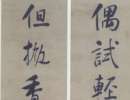 偶試輕
但撤香